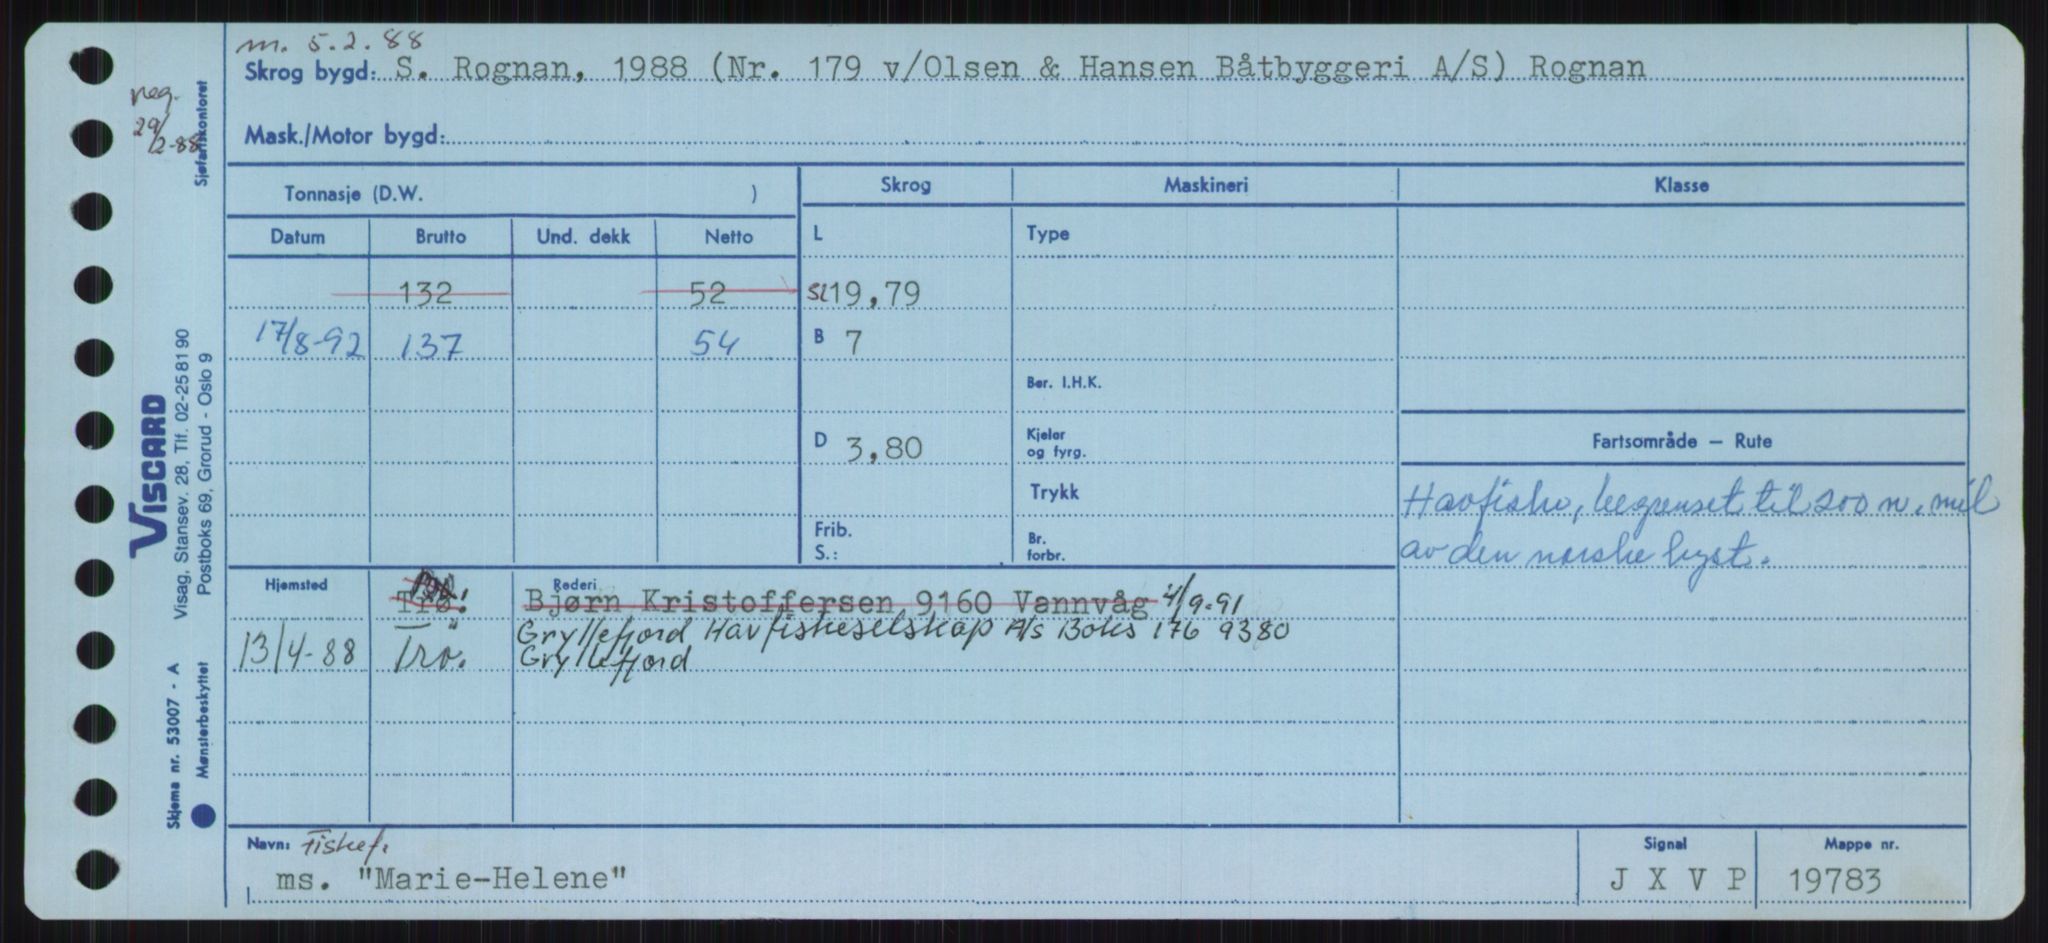 m. 5.2.88
Skrog bygd: S. Rognan, 1988 (Nr. 179 v/Olsen & Hansen Båtbyggeri A/S) Rognan
reg.
29/2-88
Mask./Motor bygd:
Sjøfartskontoret
Tonnasje (D.W. )
Skrog Maskineri Klasse
Datum Brutto Und. dekk Netto L Type
132 52 SL 19,79
17/8-92 137 54 B 7
Ber. I.H.K.
D 3,80 Kjeler og fyrg.
Fartsområde — Rute
Trykk
Havfiske, begrenset til 200 n. mil
av den norske kyst.
Frib.
S.:
Br.
forbr.
Hjemsted Rederi
Trø. Bjørn Kristoffersen 9160 Vannvåg 4/9-91
13/4-88 Tro. Gryllefjord Havfiskeselskap A/S Boks 176 9380
Gryllefjord
VISCARD
Visag, Stansev. 28, Tlf. 02-25 81 90
Postboks 69, Grorud - Oslo 9
Skjema nr. 53007 - A
Mønsterbeskyttet
Navn: Fiskef.
ms. "Marie-Helene"
Signal
J X V P
Mappe nr.
19783